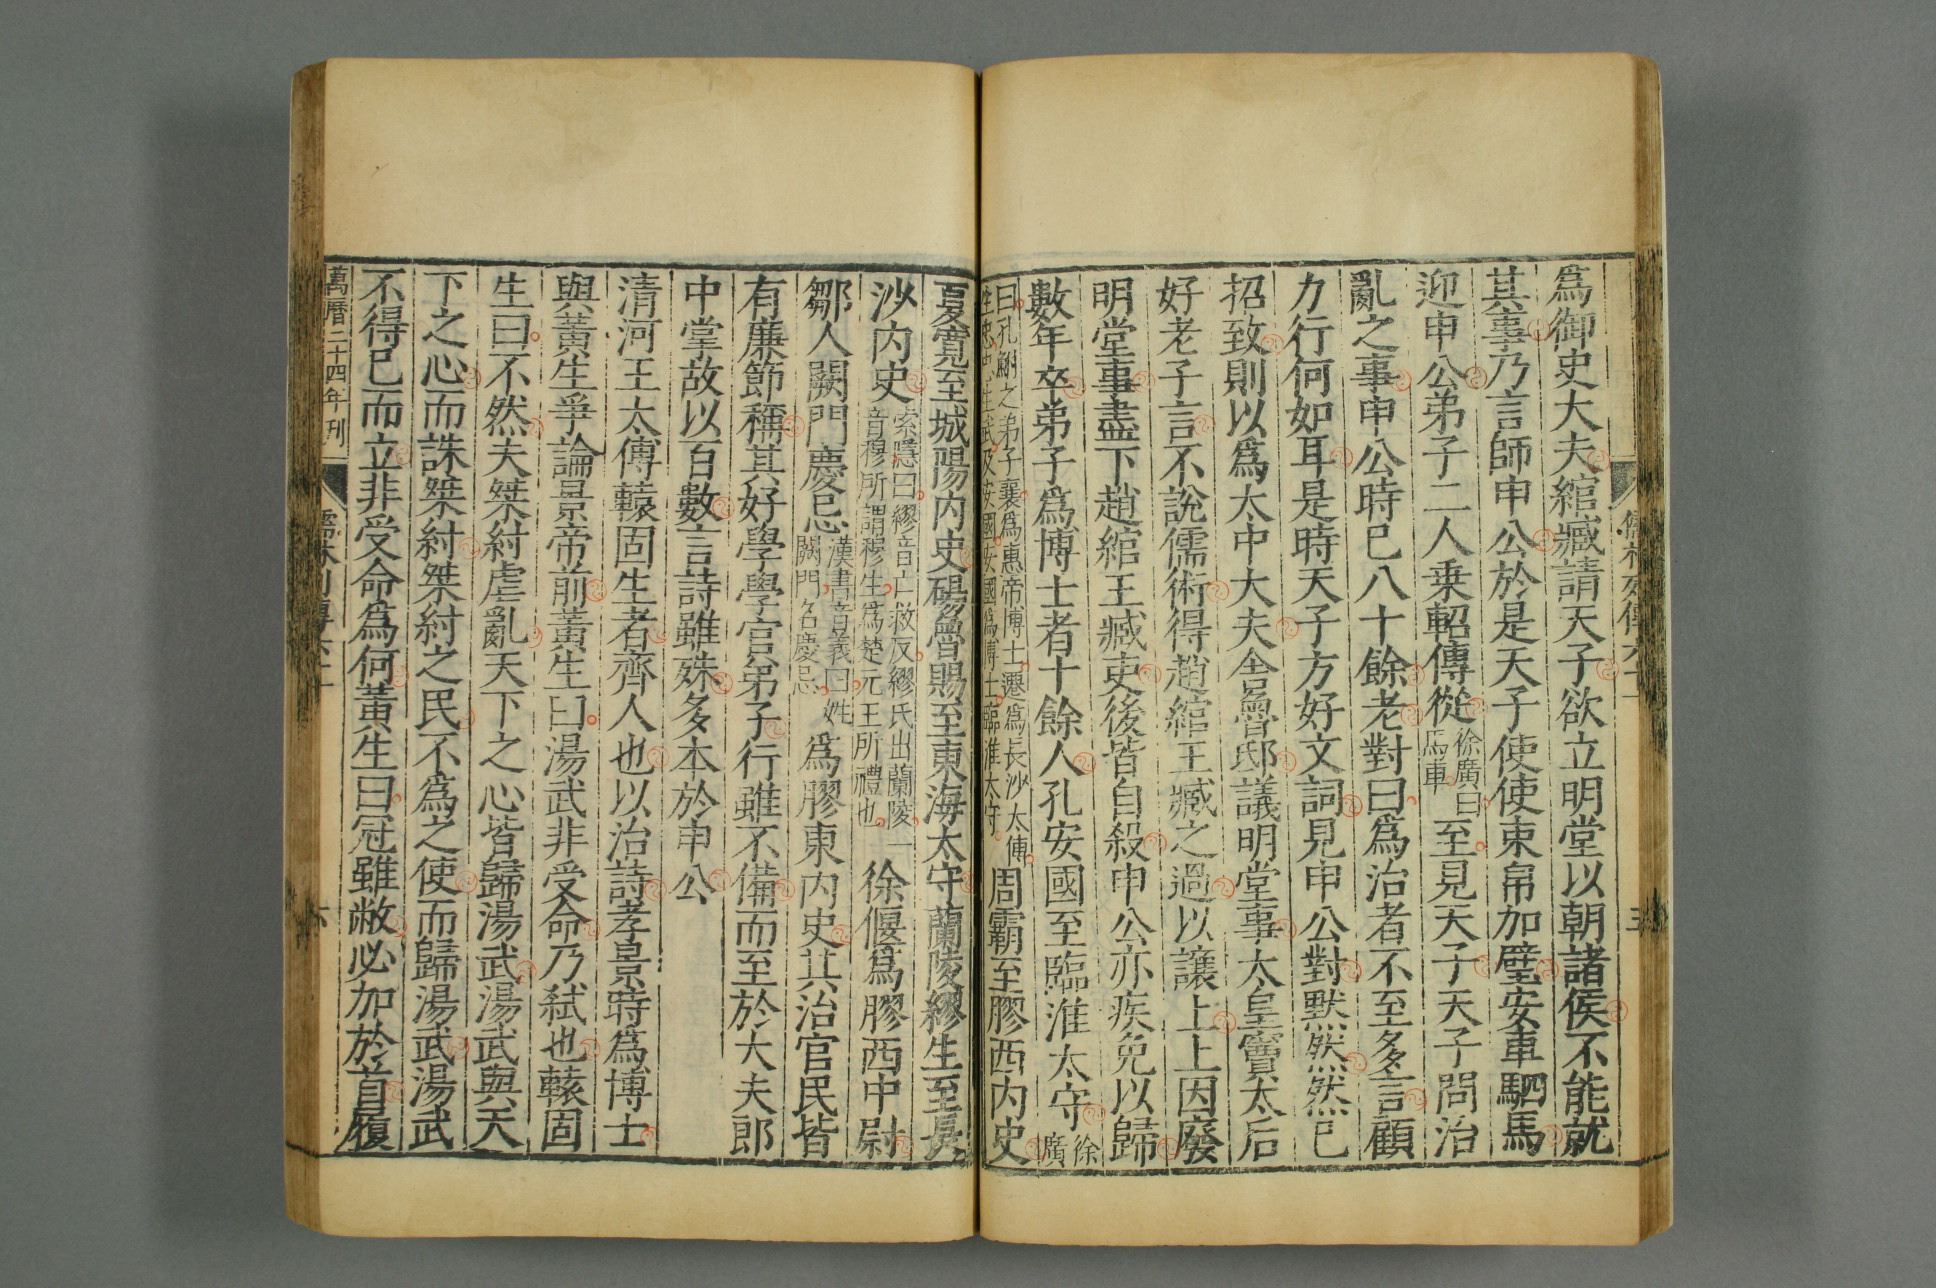 儒林列傳六十一
為御史大夫綰臧請天子欲立明堂以朝諸侯不能就
其事乃言師申公於是天子使使束帛加璧安車駟馬
迎申公弟子二人乗軺傳從徐廣曰馬車至見天子天子問治
亂之事申公時已八十餘老對曰為治者不至多言顧
力行何如耳是時天子方好文詞見申公對默然然已
招致則以為太中大夫舍魯邸議明堂事太皇竇太后
好老子言不說儒術得趙綰王臧之過以讓上上因廢
明堂事盡下趙綰王臧吏後皆自殺申公亦疾免以歸
數年卒弟子為博士者十餘人孔安國至臨淮太守徐廣
曰孔鮒之弟子襄為惠帝博士遷為長沙太傅生忠忠生武及安國安國為博士臨淮太守周霸至膠西內史
夏寬至城陽內史碭魯賜至東海太守蘭陵繆生至長
沙內史索隱曰繆音亡救反繆氏出蘭陵一音穆所謂穆生為楚元王所禮也徐偃為膠西中尉
鄒人闕門慶忌漢書音義曰姓闕門名慶忌為膠東內史其治官民皆
有廉節稱其好學學官弟子行雖不備而至於大夫郎
中掌故以百數言詩雖殊多本於申公
清河王太傅轅固生者齊人也以治詩孝景時為博士
與黃生爭論景帝前黃生曰湯武非受命乃弒也轅固
生曰不然夫桀紂虐亂天下之心皆歸湯武湯武與天
下之心而誅桀紂桀紂之民不為之使而歸湯武湯武
不得已而立非受命為何黃生曰冠雖敝必加於首履
萬曆二十四年刊 儒林列傳六十一 六